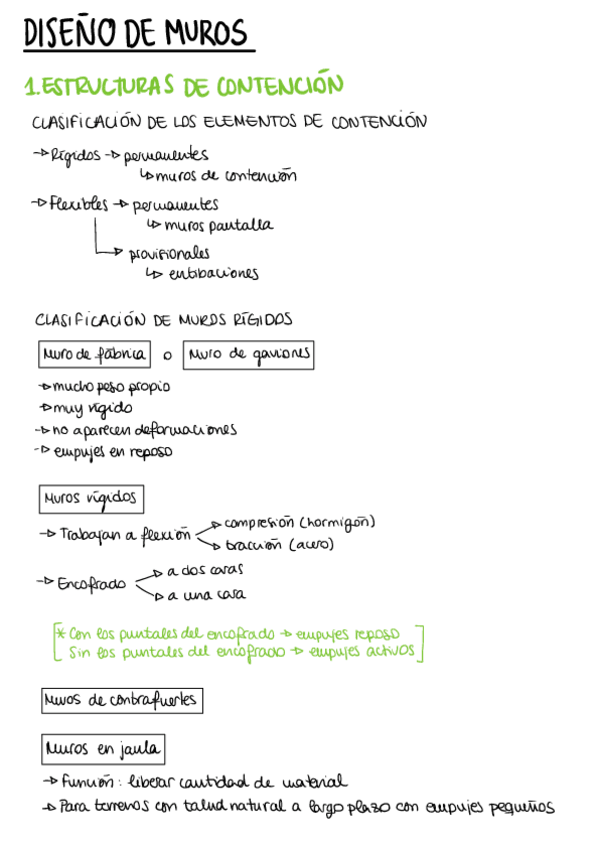 DISEÑO DE MUROS
1. ESTRUCTURAS DE CONTENCIÓN
CLASIFICACIÓN DE LOS ELEMENTOS DE CONTENCIÓN
→ Rígidos → permanentes
↳ muros de contención
→ Flexibles → permanentes
↳ muros pantalla
→ provisionales
↳ entibaciones
CLASIFICACIÓN DE MUROS RÍGIDOS
Muro de fábrica o Muro de gaviones
→ mucho peso propio
→ muy rígido
→ no aparecen deformaciones
→ empujes en reposo
Muros rígidos
→ Trabajan a flexión → compresión (hormigón)
→ tracción (acero)
→ Encofrado → a dos caras
→ a una cara
* Con los puntales del encofrado → empujes reposo
Sin los puntales del encofrado → empujes activos
Muros de contrafuertes
Muros en jaula
→ Función: liberar cantidad de material
→ Para terrenos con talud natural a largo plazo con empujes pequeños